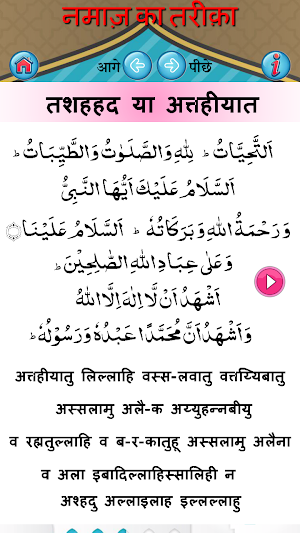 नमाज़ का तरीक़ा
आगे पीछे
तशहहद या अत्तहीयात
اَلتَّحِيَّاتُ ؕ لِلّٰهِ وَالصَّلَوٰتُ وَالطَّيِّبَاتُ ؕ
اَلسَّلَامُ عَلَيْكَ اَيُّهَا النَّبِىُّ
وَرَحْمَةُ اللهِ وَبَرَكَاتُهٗ ؕ اَلسَّلَامُ عَلَيْنَا
وَعَلٰى عِبَادِ اللهِ الصّٰلِحِيْنَ ؕ
اَشْهَدُ اَنْ لَّا اِلٰهَ اِلَّا اللهُ
وَاَشْهَدُ اَنَّ مُحَمَّدًا عَبْدُهٗ وَرَسُوْلُهٗ ؕ
अत्तहीयातु लिल्लाहि वस्स-लवातु वत्तय्यिबातु
अस्सलामु अलै-क अय्युहन्नबीयु
व रह्मतुल्लाहि व ब-र-कातुहू अस्सलामु अलैना
व अला इबादिल्लाहिस्सालिही न
अश्हदु अल्लाइलाह इल्लल्लाहु